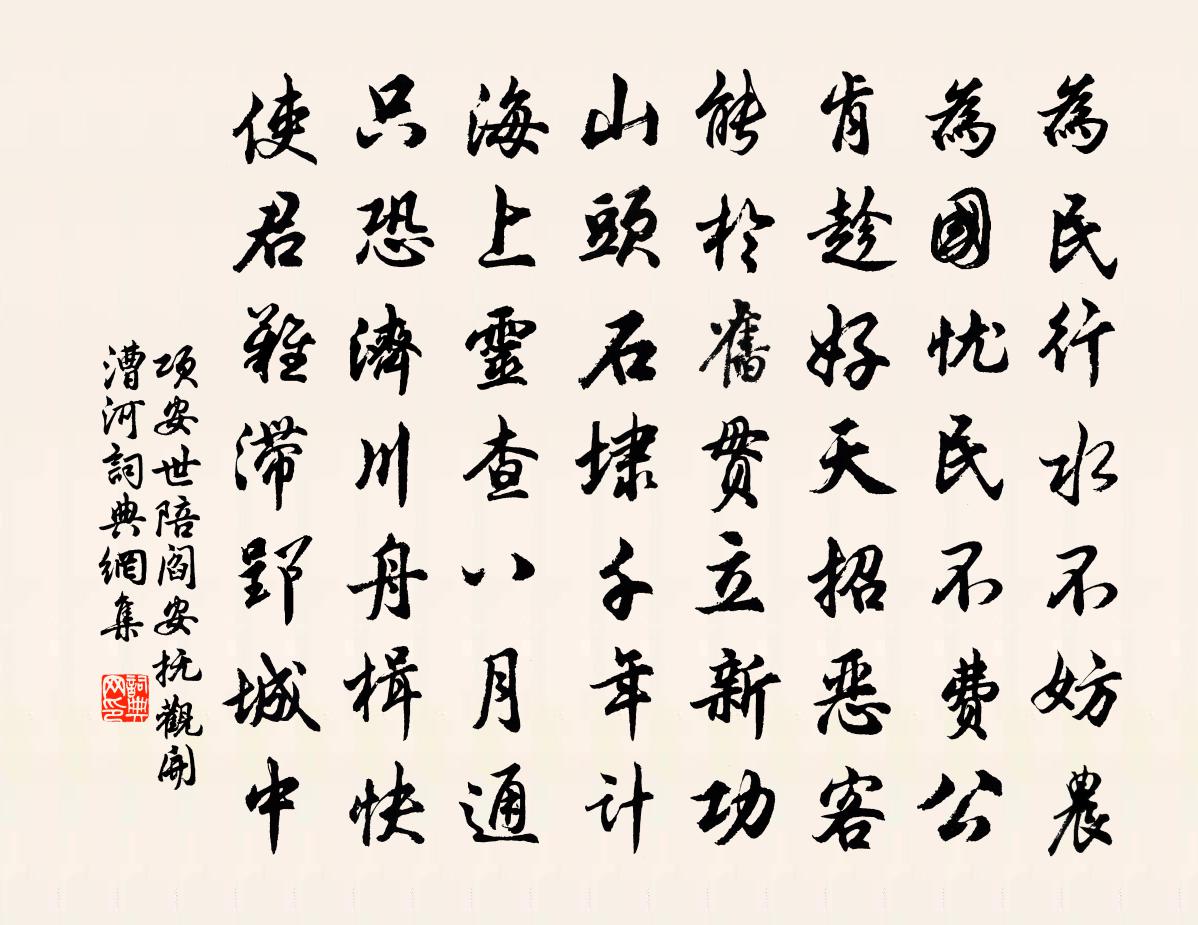 為民行水不妨農
為國忧民不費公
肯趁好天招惡客
能於舊贯立新功
山頭石埭千年计
海上靈查八月通
只恐濟川舟楫快
使君難滞郢城中
项安世陪阎安抚觀開
漕河詞典網集
詞典
网印